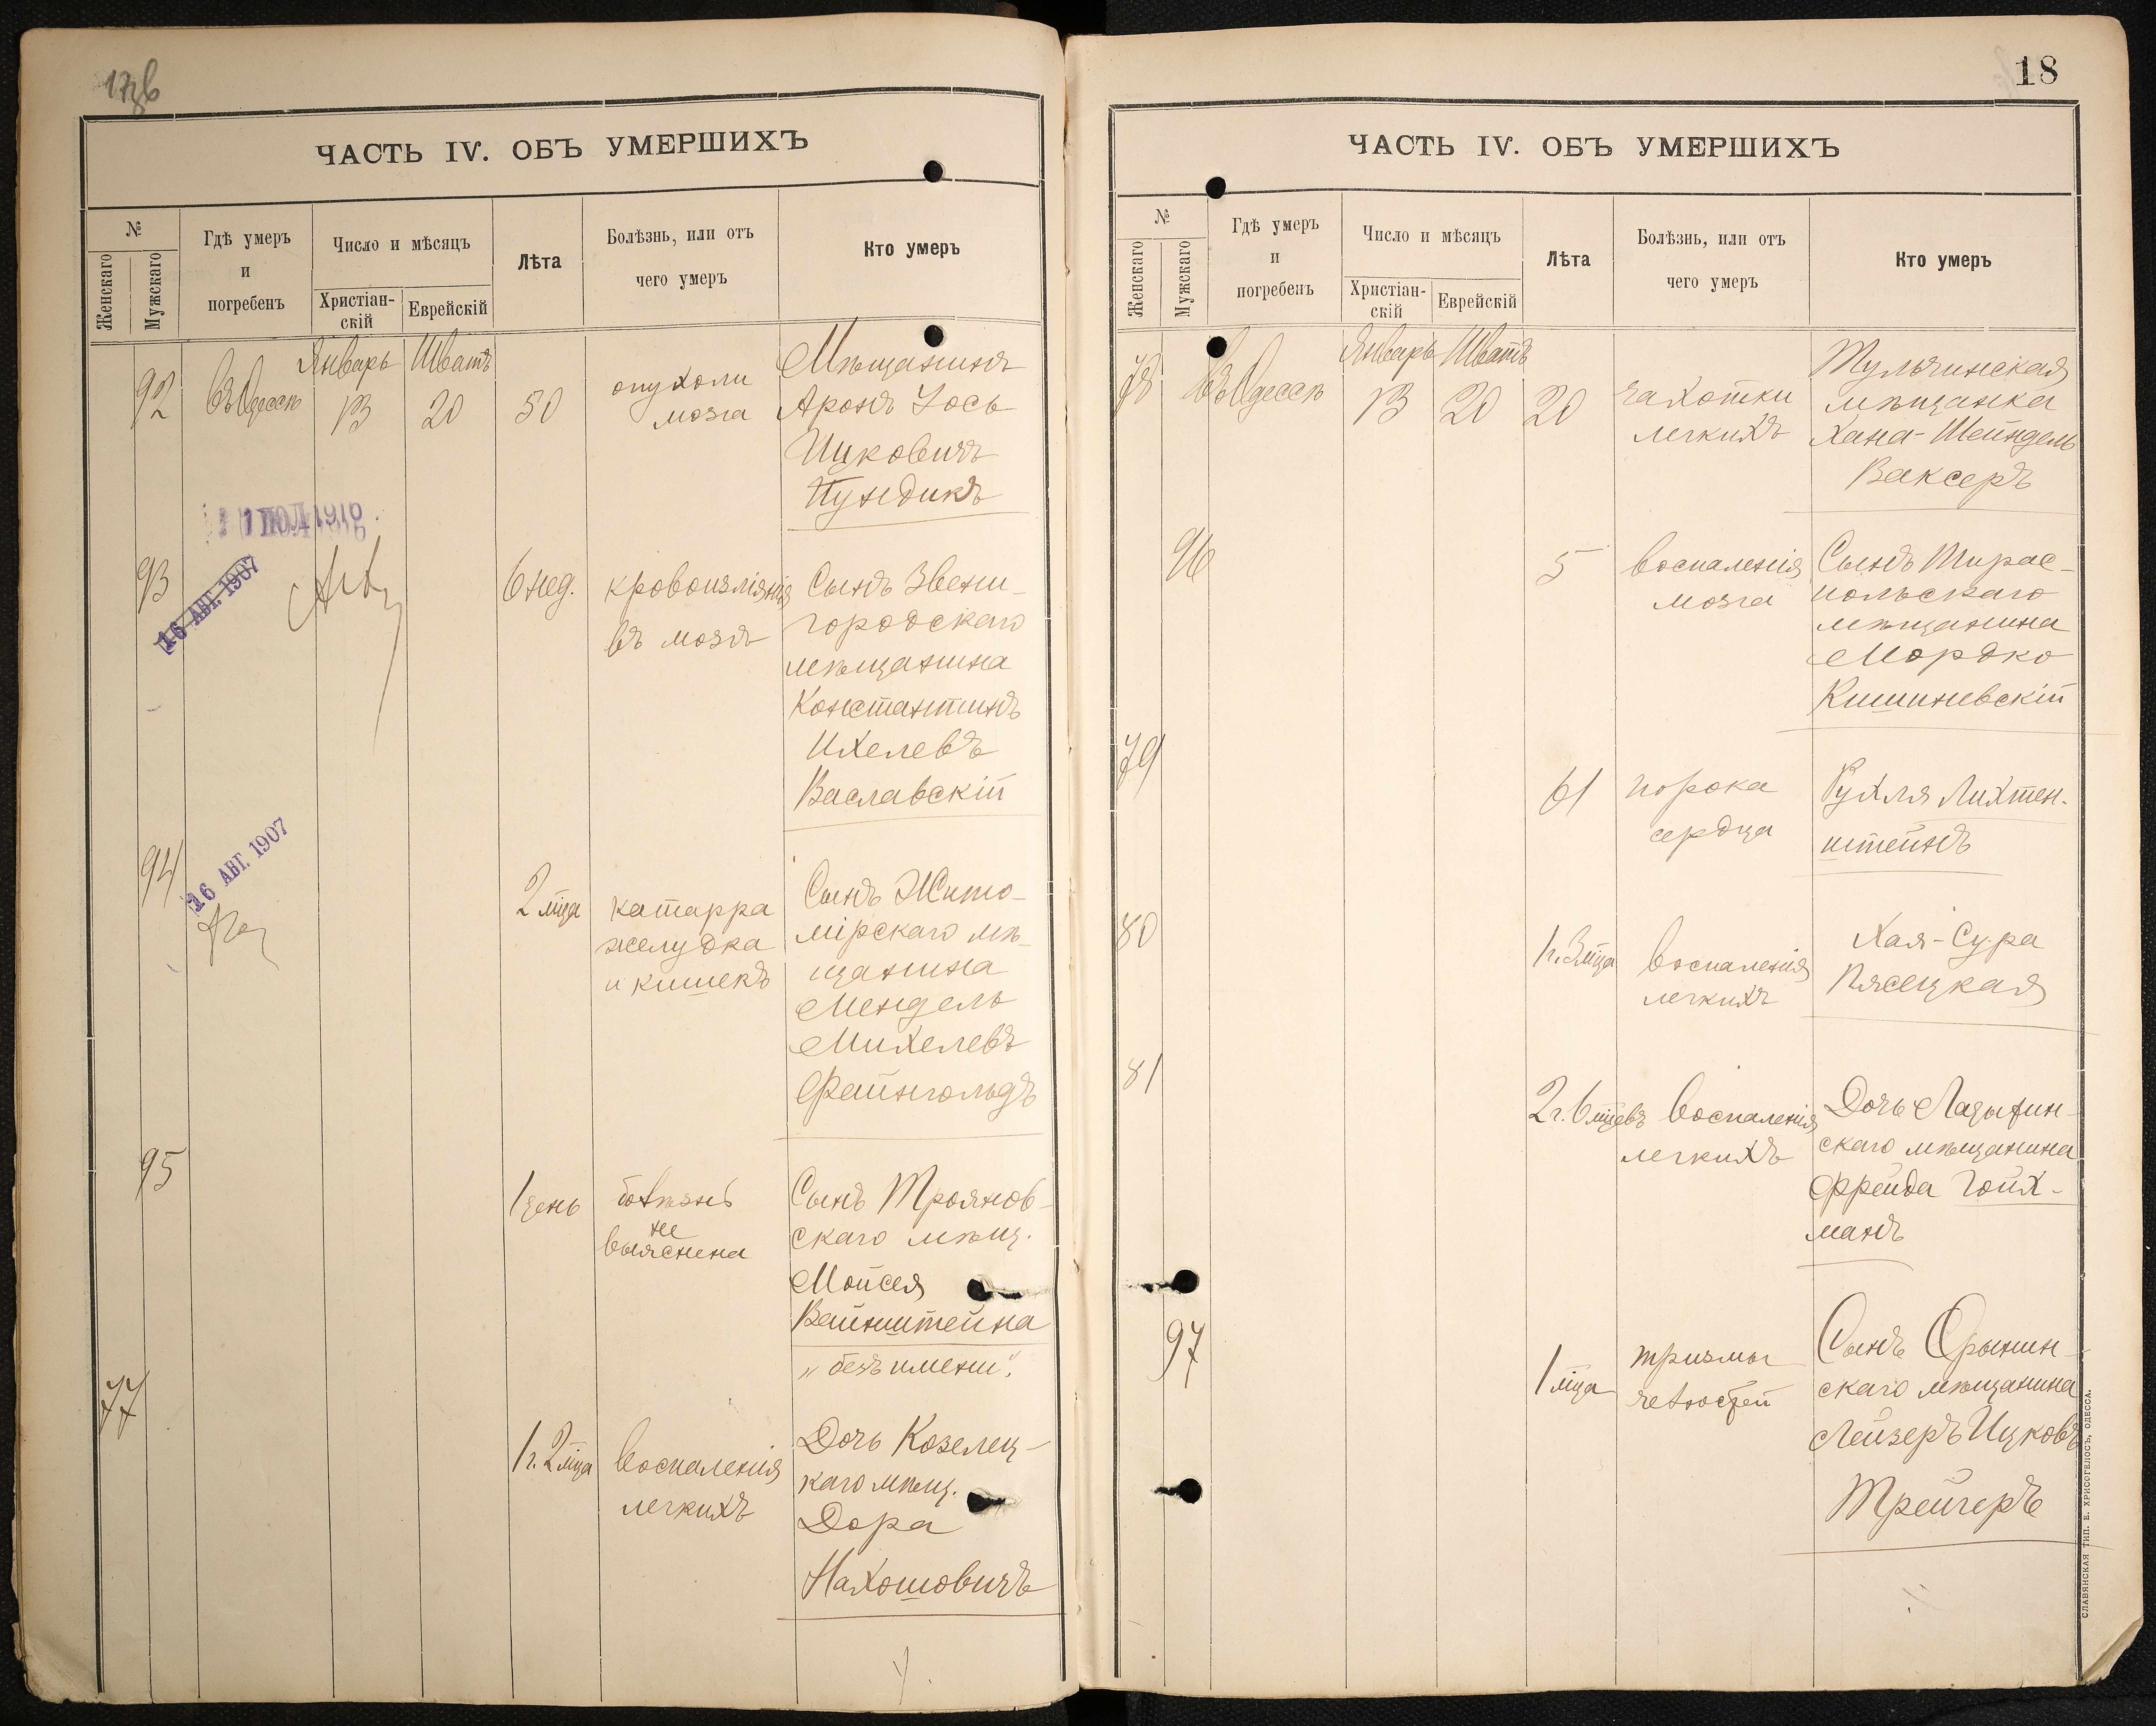 ЧАСТЬ IV. ОБЪ УМЕРШИХЪ
№
Женскаго
Мужскаго
Гдѣ умеръ
и
погребенъ
Число и мѣсяцъ
Христіан-
скій
Еврейскій
Лѣта
Болѣзнь, или отъ
чего умеръ
Кто умеръ
92
въ Одессѣ
Январь
13
Шватъ
20
50
опухоли
мозга
Мѣщанинъ
Аронъ Іось
Ицковичъ
Пундикъ
1 ІЮЛ 1916
93
16 АВГ. 1907
6 нед.
кровоизліянія
въ мозгъ
Сынъ Звени-
городскаго
мѣщанина
Константинъ
Ихелевъ
Ваславскій
94
16 АВГ. 1907
2 мца
катарра
желудка
и кишекъ
Сынъ Жито-
мірскаго мѣ-
щанина
Мендель
Михелевъ
Файнгольдъ
95
1 день
болѣзнь
не
выяснена
Сынъ Троянов-
скаго мѣщ.
Мойсея
Вайнштейна
„безъ имени".
77
1 г. 2 мца
воспаленія
легкихъ
Дочь Козелец-
каго мѣщ.
Дора
Нахошовичъ
18
ЧАСТЬ IV. ОБЪ УМЕРШИХЪ
№
Женскаго
Мужскаго
Гдѣ умеръ
и
погребенъ
Число и мѣсяцъ
Христіан-
скій
Еврейскій
Лѣта
Болѣзнь, или отъ
чего умеръ
Кто умеръ
78
въ Одессѣ
Январь
13
Шватъ
20
20
чахотки
легкихъ
Тульчинская
мѣщанка
Хана-Шейндель
Ваксеръ
96
5
воспаленія
мозга
Сынъ Тирас-
польскаго
мѣщанина
Мордко
Кишиневскій
79
61
порока
сердца
Рухля Лихтен-
штейнъ
80
1 г. 3 мца
воспаленія
легкихъ
Хая-Сура
Пясецкая
81
2 г. 6 мцевъ
воспаленія
легкихъ
Дочь Ладыжин-
скаго мѣщанина
Фрейда Гойх-
манъ
97
1 мца
тризмы
челюстей
Сынъ Орынин-
скаго мѣщанина
Лейзеръ Ицковъ
Трейгеръ
СЛАВЯНСКАЯ ТИП. Е. ХРИСОГЕЛОСЪ, ОДЕССА.